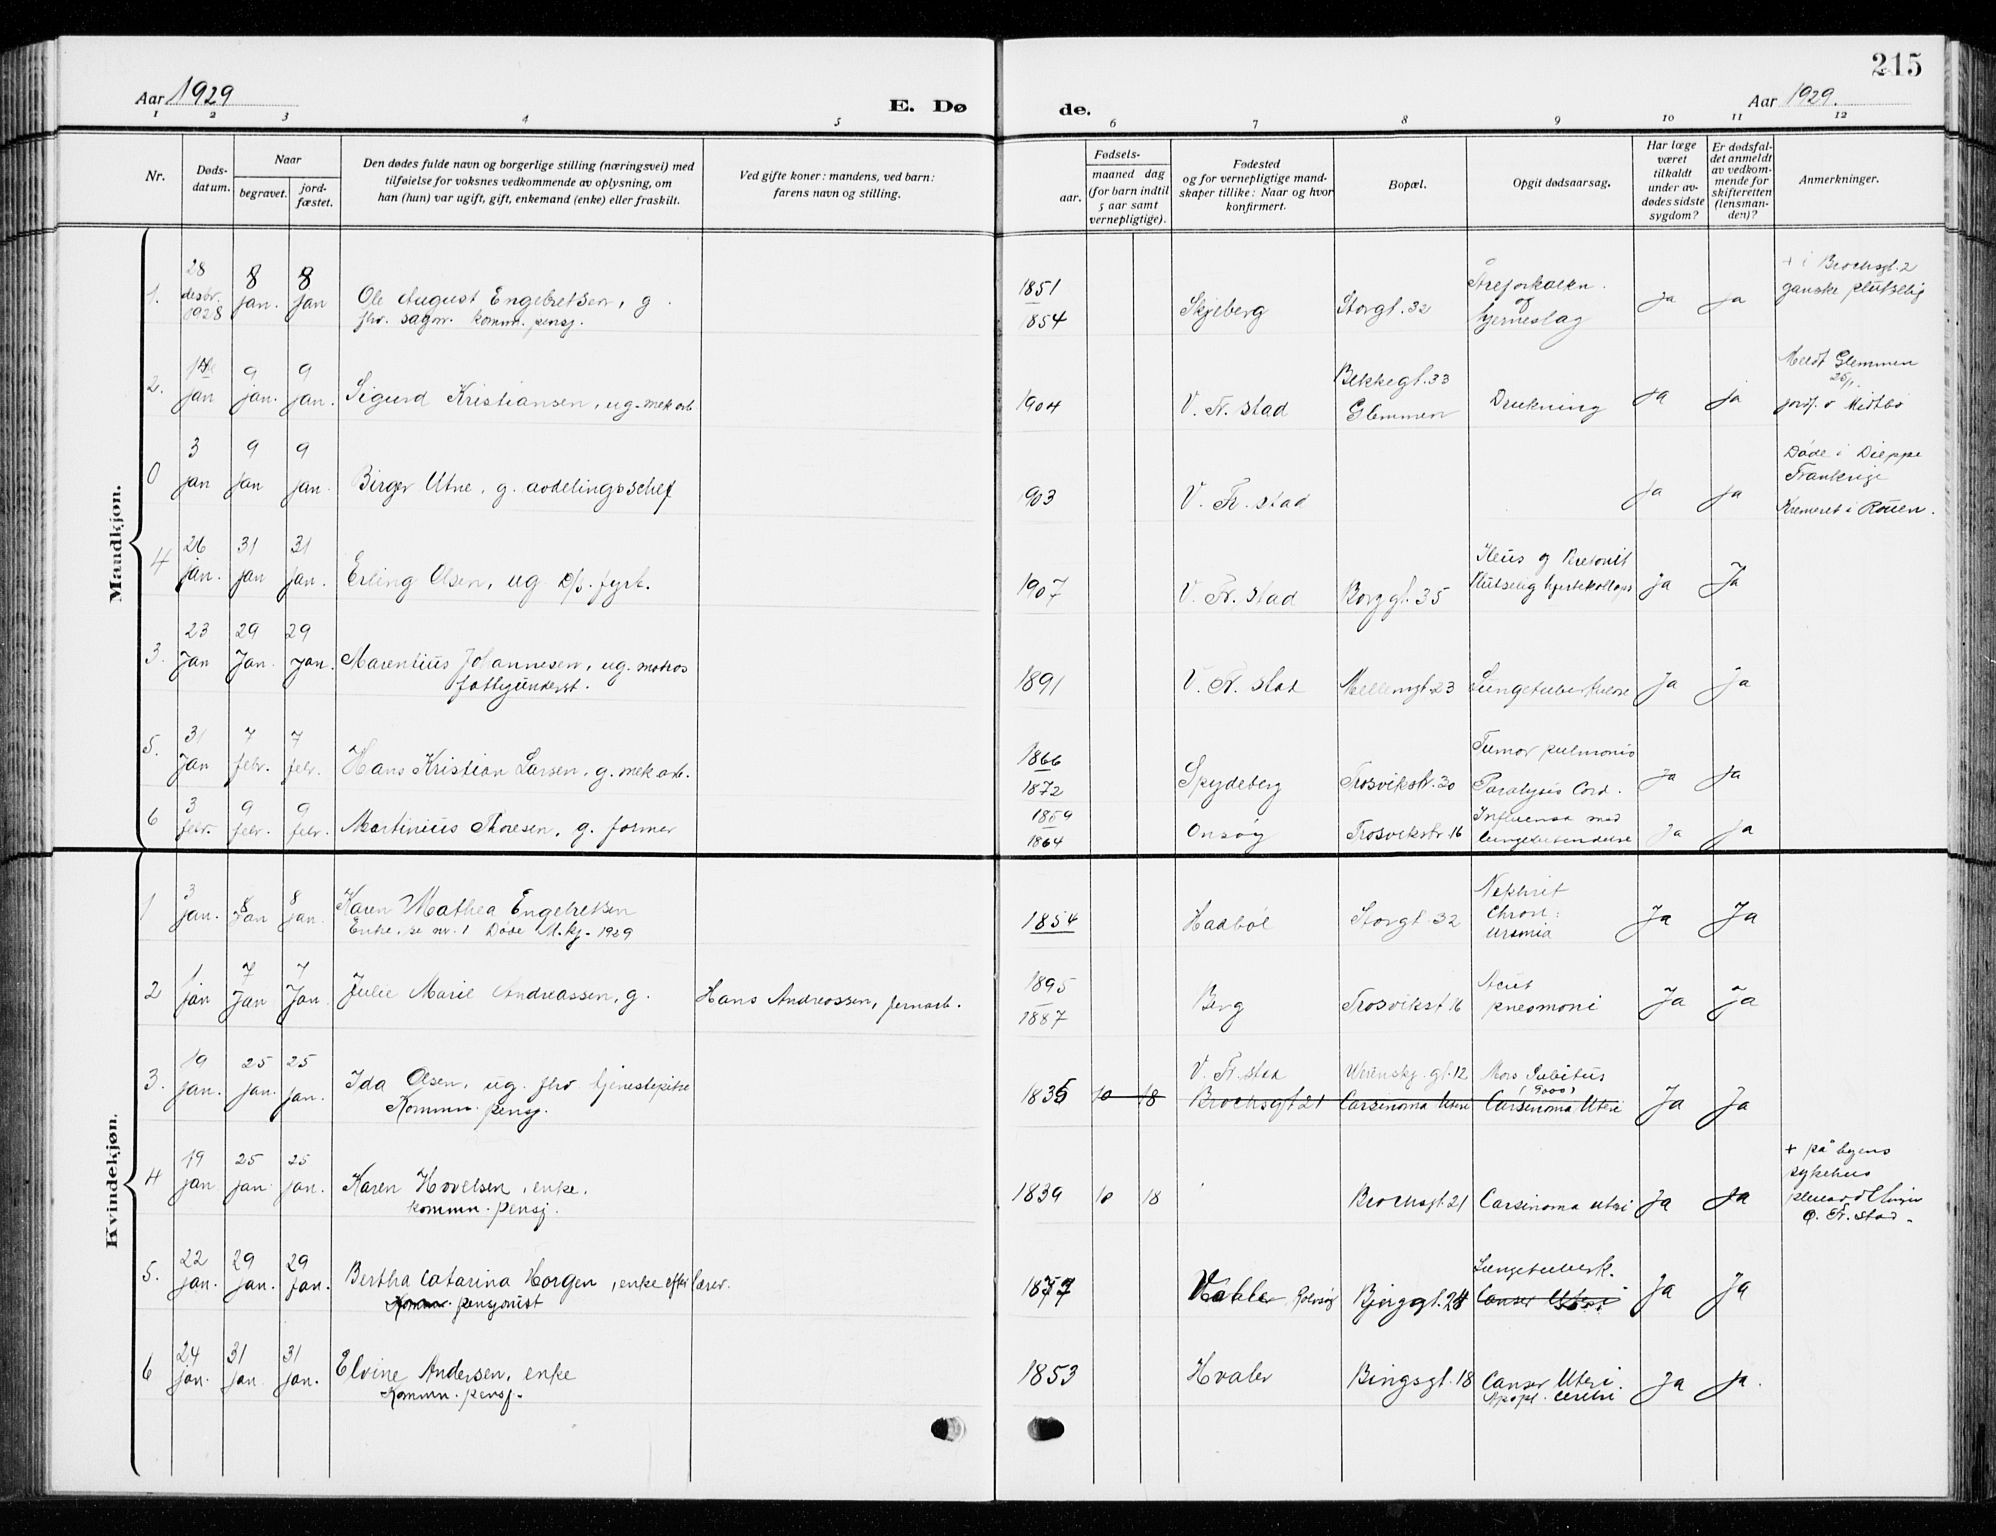 215
Aar 1929
E. Dø
de.
Aar 1929.
1 2 3 4 5 6 7 8 9 10 11 12
Nr.
Døds-
datum.
Naar
begravet.
jord-
fæstet.
Den dødes fulde navn og borgerlige stilling (næringsvei) med
tilføielse for voksnes vedkommende av oplysning, om
han (hun) var ugift, gift, enkemand (enke) eller fraskilt.
Ved gifte koner: mandens, ved barn:
farens navn og stilling.
Fødsels-
aar.
maaned dag
(for barn indtil
5 aar samt
vernepligtige).
Fødested
og for vernepligtige mand-
skaper tillike: Naar og hvor
konfirmert.
Bopæl.
Opgit dødsaarsag.
Har læge
været
tilkaldt
under av-
dødes sidste
sygdom?
Er dødsfal-
det anmeldt
av vedkom-
mende for
skifteretten
(lensman-
den)?
Anmerkninger.
Mandkjøn.
1. 28 desbr. 1928 8 jan. 8 jan Ole August Engebretsen, g.
fhv. sagm. komm. pensj.
1851
1854 Skjeberg Storgt. 32 Åreforkalkn.
og
hjerneslag ja ja + i Brochsgt. 2
ganske plutselig
2. jan 9 jan. 9 jan. Sigurd Kristiansen, ug. mek arb
1904 V. Fr. stad Bekkegt. 33
Glemmen Drukning ja ja Meldt Glemmen
25/1.
0 3 jan 9 jan 9 jan. Birger Utne, g. avdelingsschef
903 V. Fr. stad ja ja Døde i Dieppe
Frankrige
Kremeret i Rouen.
4 26 jan. 31 jan 31 jan. Erling Olsen, ug D/s. fyrb.
1907 V. Fr. stad Borggt. 35 Ileus og Peretonit
Plutselig hjertekollaps ja Ja
3. 23 Jan 29 Jan. 29 Jan. Marentius Johannesen, ug. matros
fattigunderst.
1891 V. Fr. stad Mellemgt. 23 Lungetuberkulose Ja ja
5. 31 Jan 7 febr. 7 febr. Hans Kristian Larsen, g. mek arb.
1866
1872 Spydeberg Trosvikstr. 30 Tumor pulmonis
Paralysis Cord. ja ja
6 3 febr. 9 febr. 9 febr. Martinius Thoresen, g. former
1859
1864 Onsøy Trosvikstr 16 Influensa med
lungebetendelse ja ja
Kvindekjøn.
1 3 jan. 8 Jan 8 jan. Karen Mathea Engebretsen
Enke, se nr. 1 Døde M.kj. 1929
1854 Hadbøl Storgt. 32 Nefhrit
Chron:
Uremia Ja Ja
2 1 jan 7 Jan 7 Jan. Julie Marie Andreassen, g. Hans Andreassen, jernarb.
1895
1887 Berg Trosvikst 16 Acut
pneomoni Ja Ja
3. 19 jan. 25 jan. 25 jan. Ida Olsen, ug. fhv tjenestepike
Kommn. pensj.
1835 10 18 V. Fr. stad
Brochsgt 21 Werenskj. gt. 12
Carsinoma Uteri Mors Subitus
(9000)
Carsinoma Uteri Ja Ja
4 19 jan 25 jan. 25 jan. Karen Hovelsen, enke.
kommn. pensj.
1839 10 18 Brochsgt. 21 Carsinoma uteri Ja Ja + på byens
sykehus
Ø. Fr. stad.
5. 22 jan. 29 jan. 29 Jan. Bertha Catarina Horgen, enke efter lærer.
Kommn. pensjonist
1877 Bjerggt. 24 Lungetuberk.
Canser Uteri Ja Ja
6 24 jan. 31 jan 31 jan. Elvine Andersen, enke
Kommn. pensj.
1853 Hvaler Bingsgt. 18 Canser Uteri.
Apopl. cerebri Ja ja.